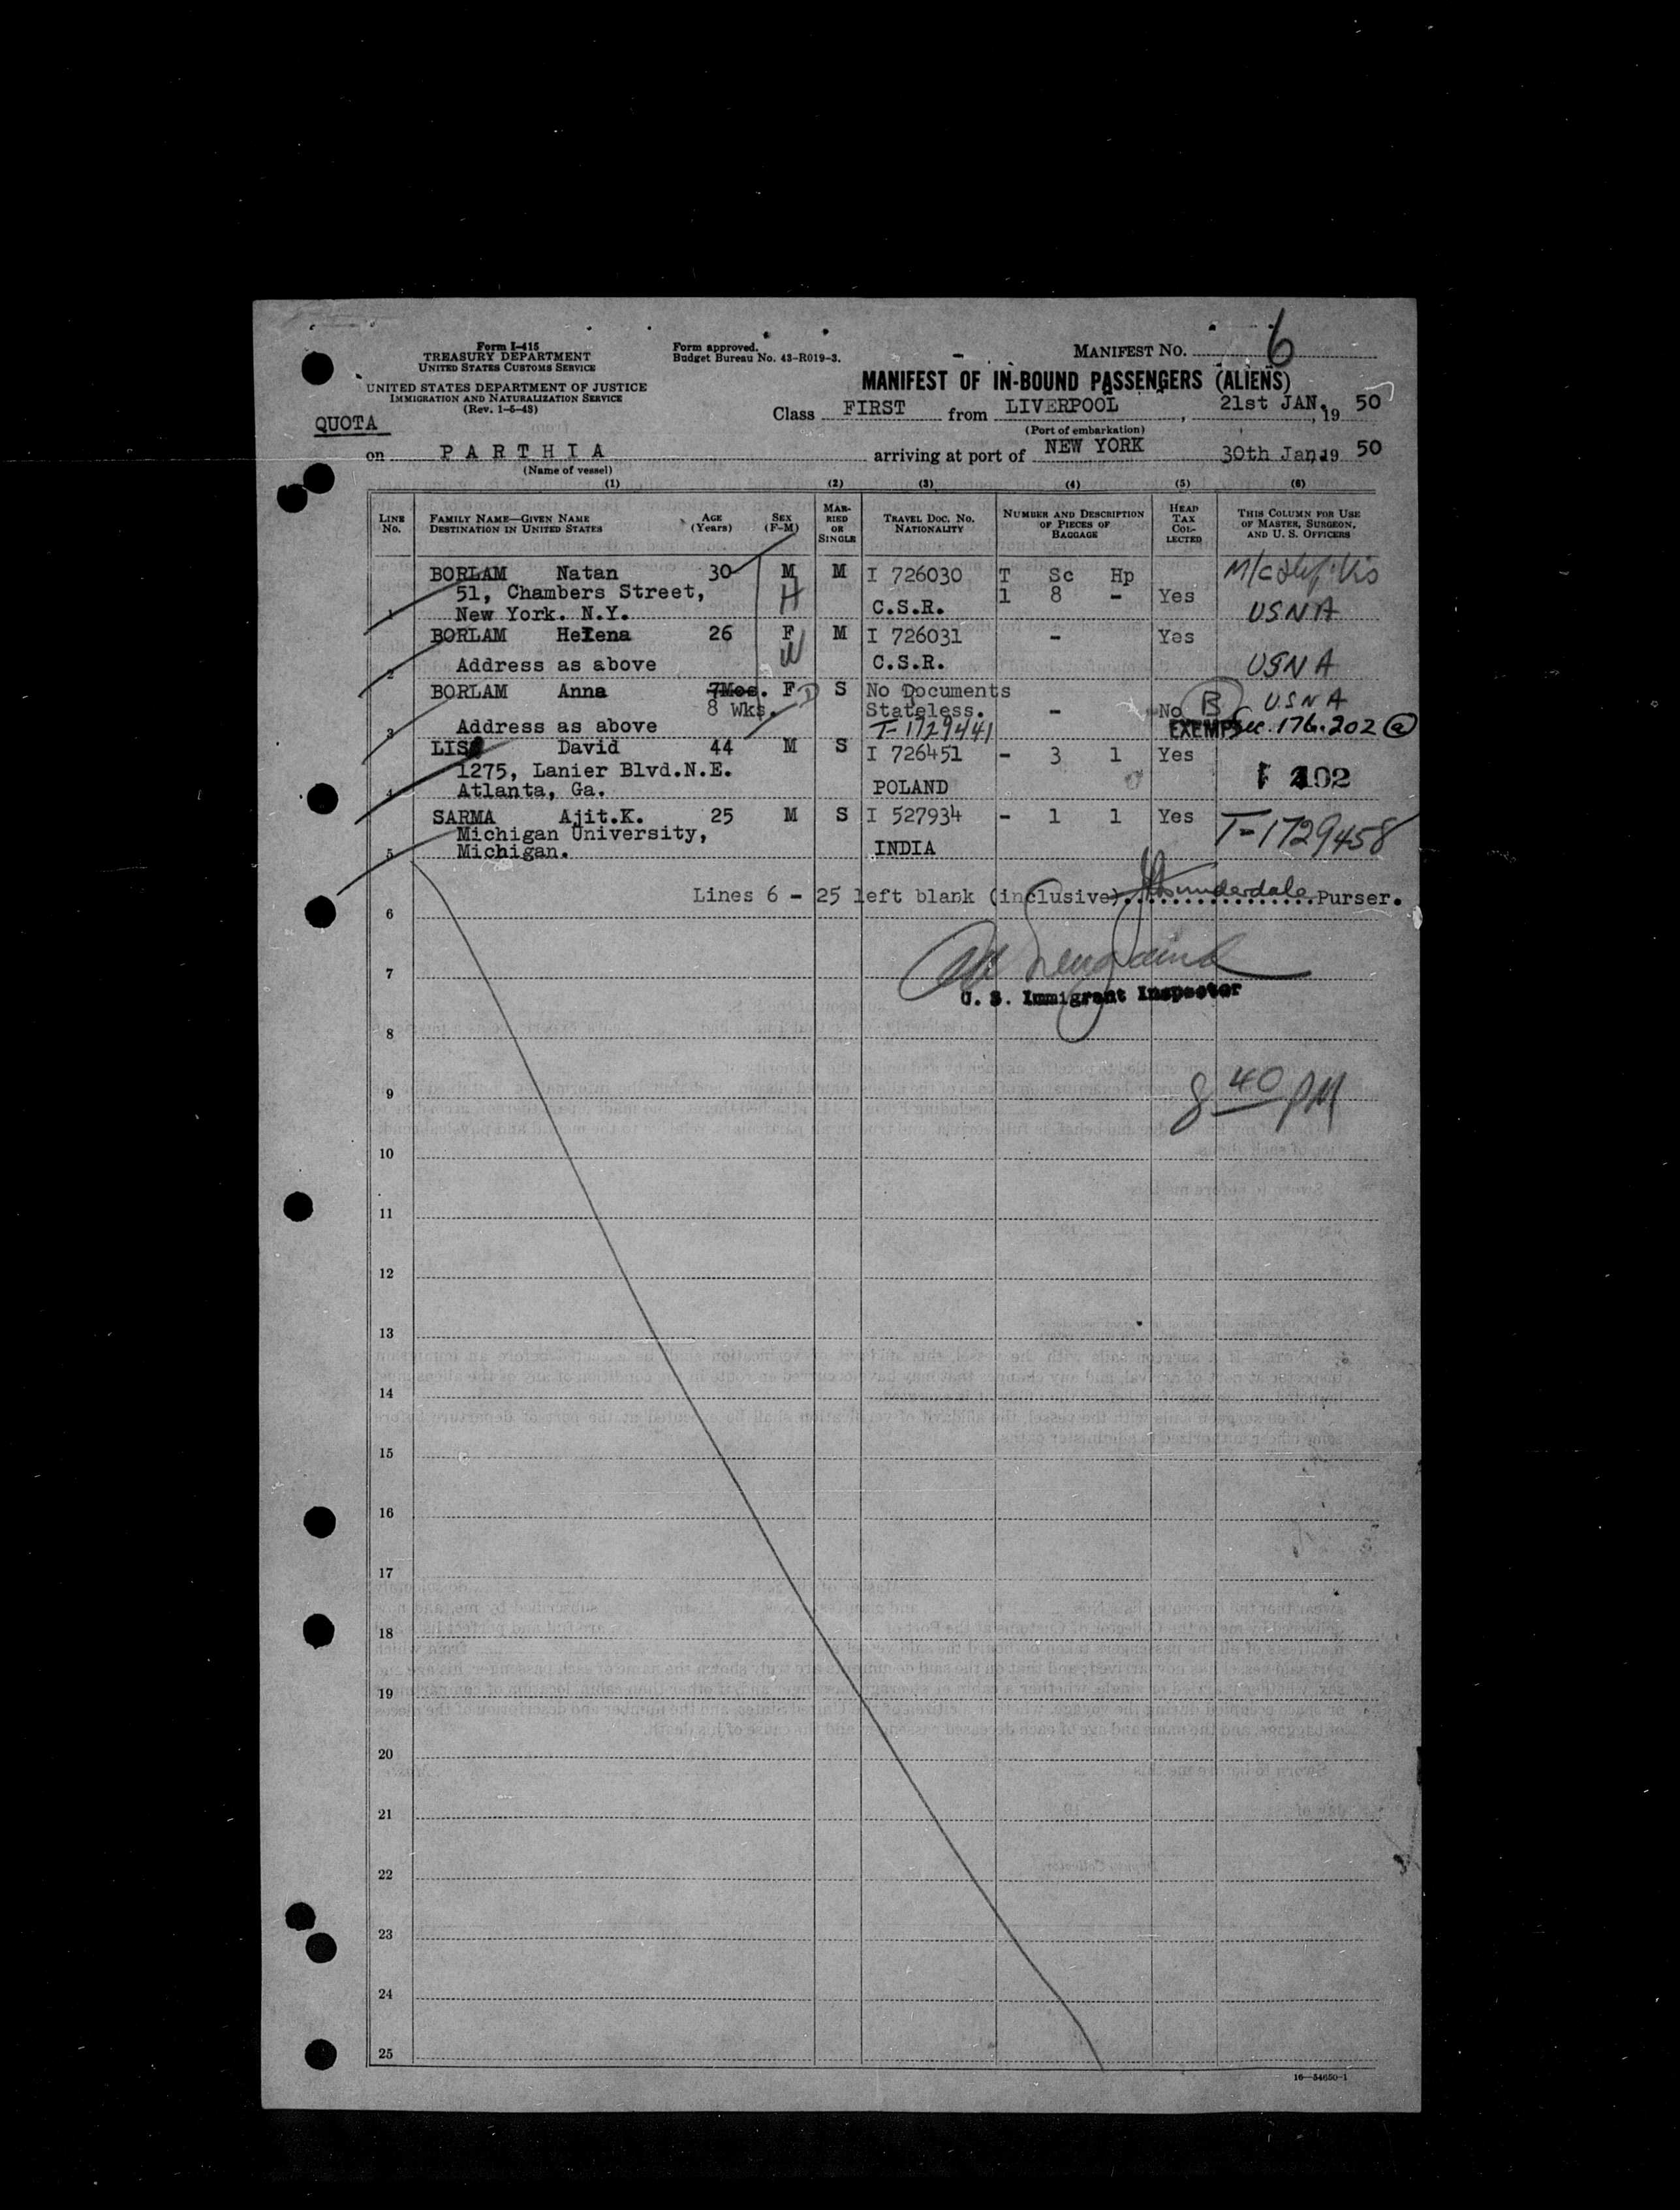 Form I-415
TREASURY DEPARTMENT
UNITED STATES CUSTOMS SERVICE
UNITED STATES DEPARTMENT OF JUSTICE
IMMIGRATION AND NATURALIZATION SERVICE
(Rev. 1-5-48)
Form approved.
Budget Bureau No. 43-R019-3.
MANIFEST NO. 6
MANIFEST OF IN-BOUND PASSENGERS (ALIENS)
QUOTA
Class FIRST from LIVERPOOL, 21st JAN., 19 50
(Port of embarkation)
on PARTHIA arriving at port of NEW YORK 30th Jan, 19 50
(Name of vessel)
(1) (2) (3) (4) (5) (6)
LINE No. FAMILY NAME—GIVEN NAME DESTINATION IN UNITED STATES AGE (Years) SEX (F-M) MARRIED OR SINGLE TRAVEL DOC. NO. NATIONALITY NUMBER AND DESCRIPTION OF PIECES OF BAGGAGE HEAD TAX COLLECTED THIS COLUMN FOR USE OF MASTER, SURGEON, AND U. S. OFFICERS
BORLAM Natan 30 M M I 726030 T Sc Hp
51, Chambers Street, H 1 8 - Yes
1 New York. N.Y. C.S.R. USNA
BORLAM Helena 26 F M I 726031 - Yes
2 Address as above W C.S.R. USNA
BORLAM Anna 7Mos. F D S No Documents
8 Wks. Stateless. - No B USNA
3 Address as above T-1729441 EXEMPT Sec. 176.202 (a)
LIS David 44 M S I 726451 - 3 1 Yes
1275, Lanier Blvd.N.E.
4 Atlanta, Ga. POLAND
SARMA Ajit.K. 25 M S I 527934 - 1 1 Yes T-1729458
Michigan University,
5 Michigan. INDIA
Lines 6 - 25 left blank (inclusive) Purser.
6
7
U. S. Immigrant Inspector
8
9 8 40 PM
10
11
12
13
14
15
16
17
18
19
20
21
22
23
24
25
16—54650-1